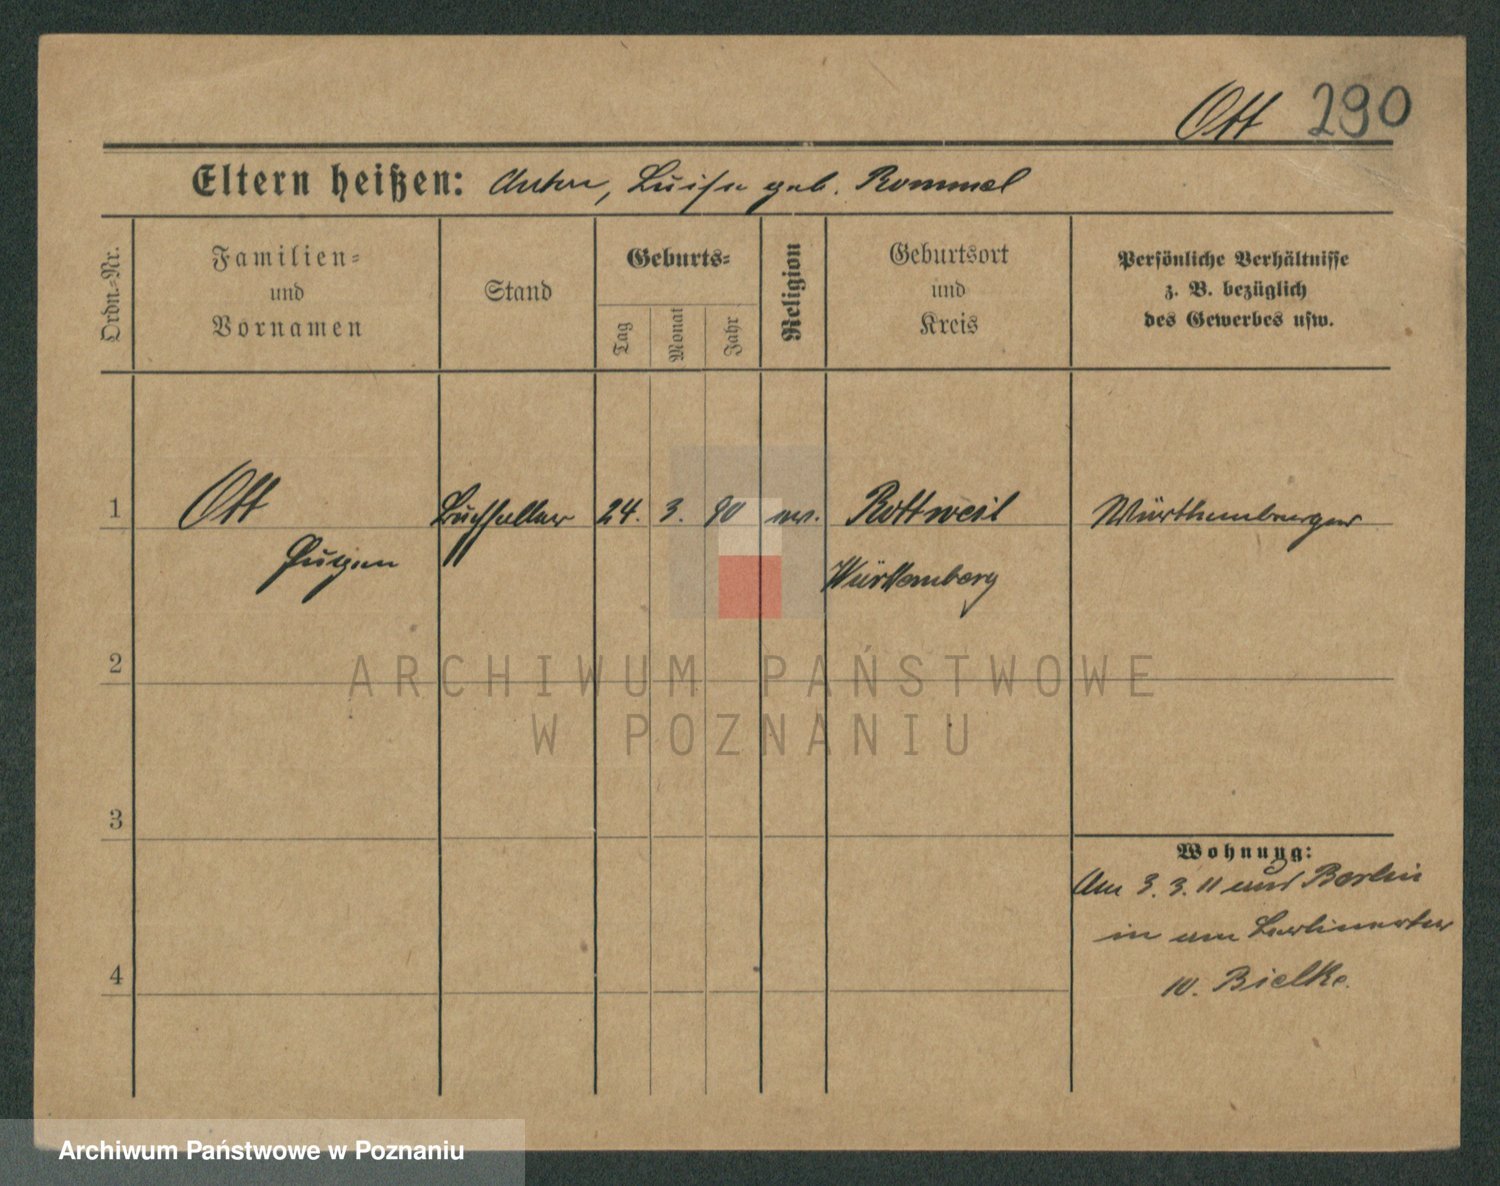 Ott 290
Eltern heißen: Anton, Luise geb. Rommel
Ordn.-Nr.
Familien-
und
Vornamen
Stand
Geburts-
Tag
Monat
Jahr
Religion
Geburtsort
und
Kreis
Persönliche Verhältnisse
z. B. bezüglich
des Gewerbes usw.
1 Ott 24. 3. 90 Rottweil Württemberger
Eugen Württemberg
2
ARCHIWUM PAŃSTWOWE
W POZNANIU
3
Wohnung:
Am 3.3.11 aus Berlin
in am Berlinerstr
10. Bielke.
4
Archiwum Państwowe w Poznaniu